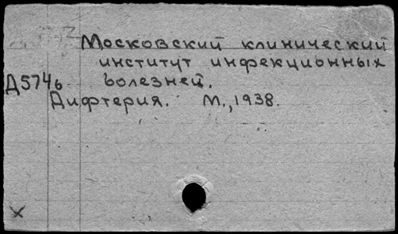 Московский клинический
институт инфекционных
Д574б болезней.
Дифтерия. М., 1938.
х